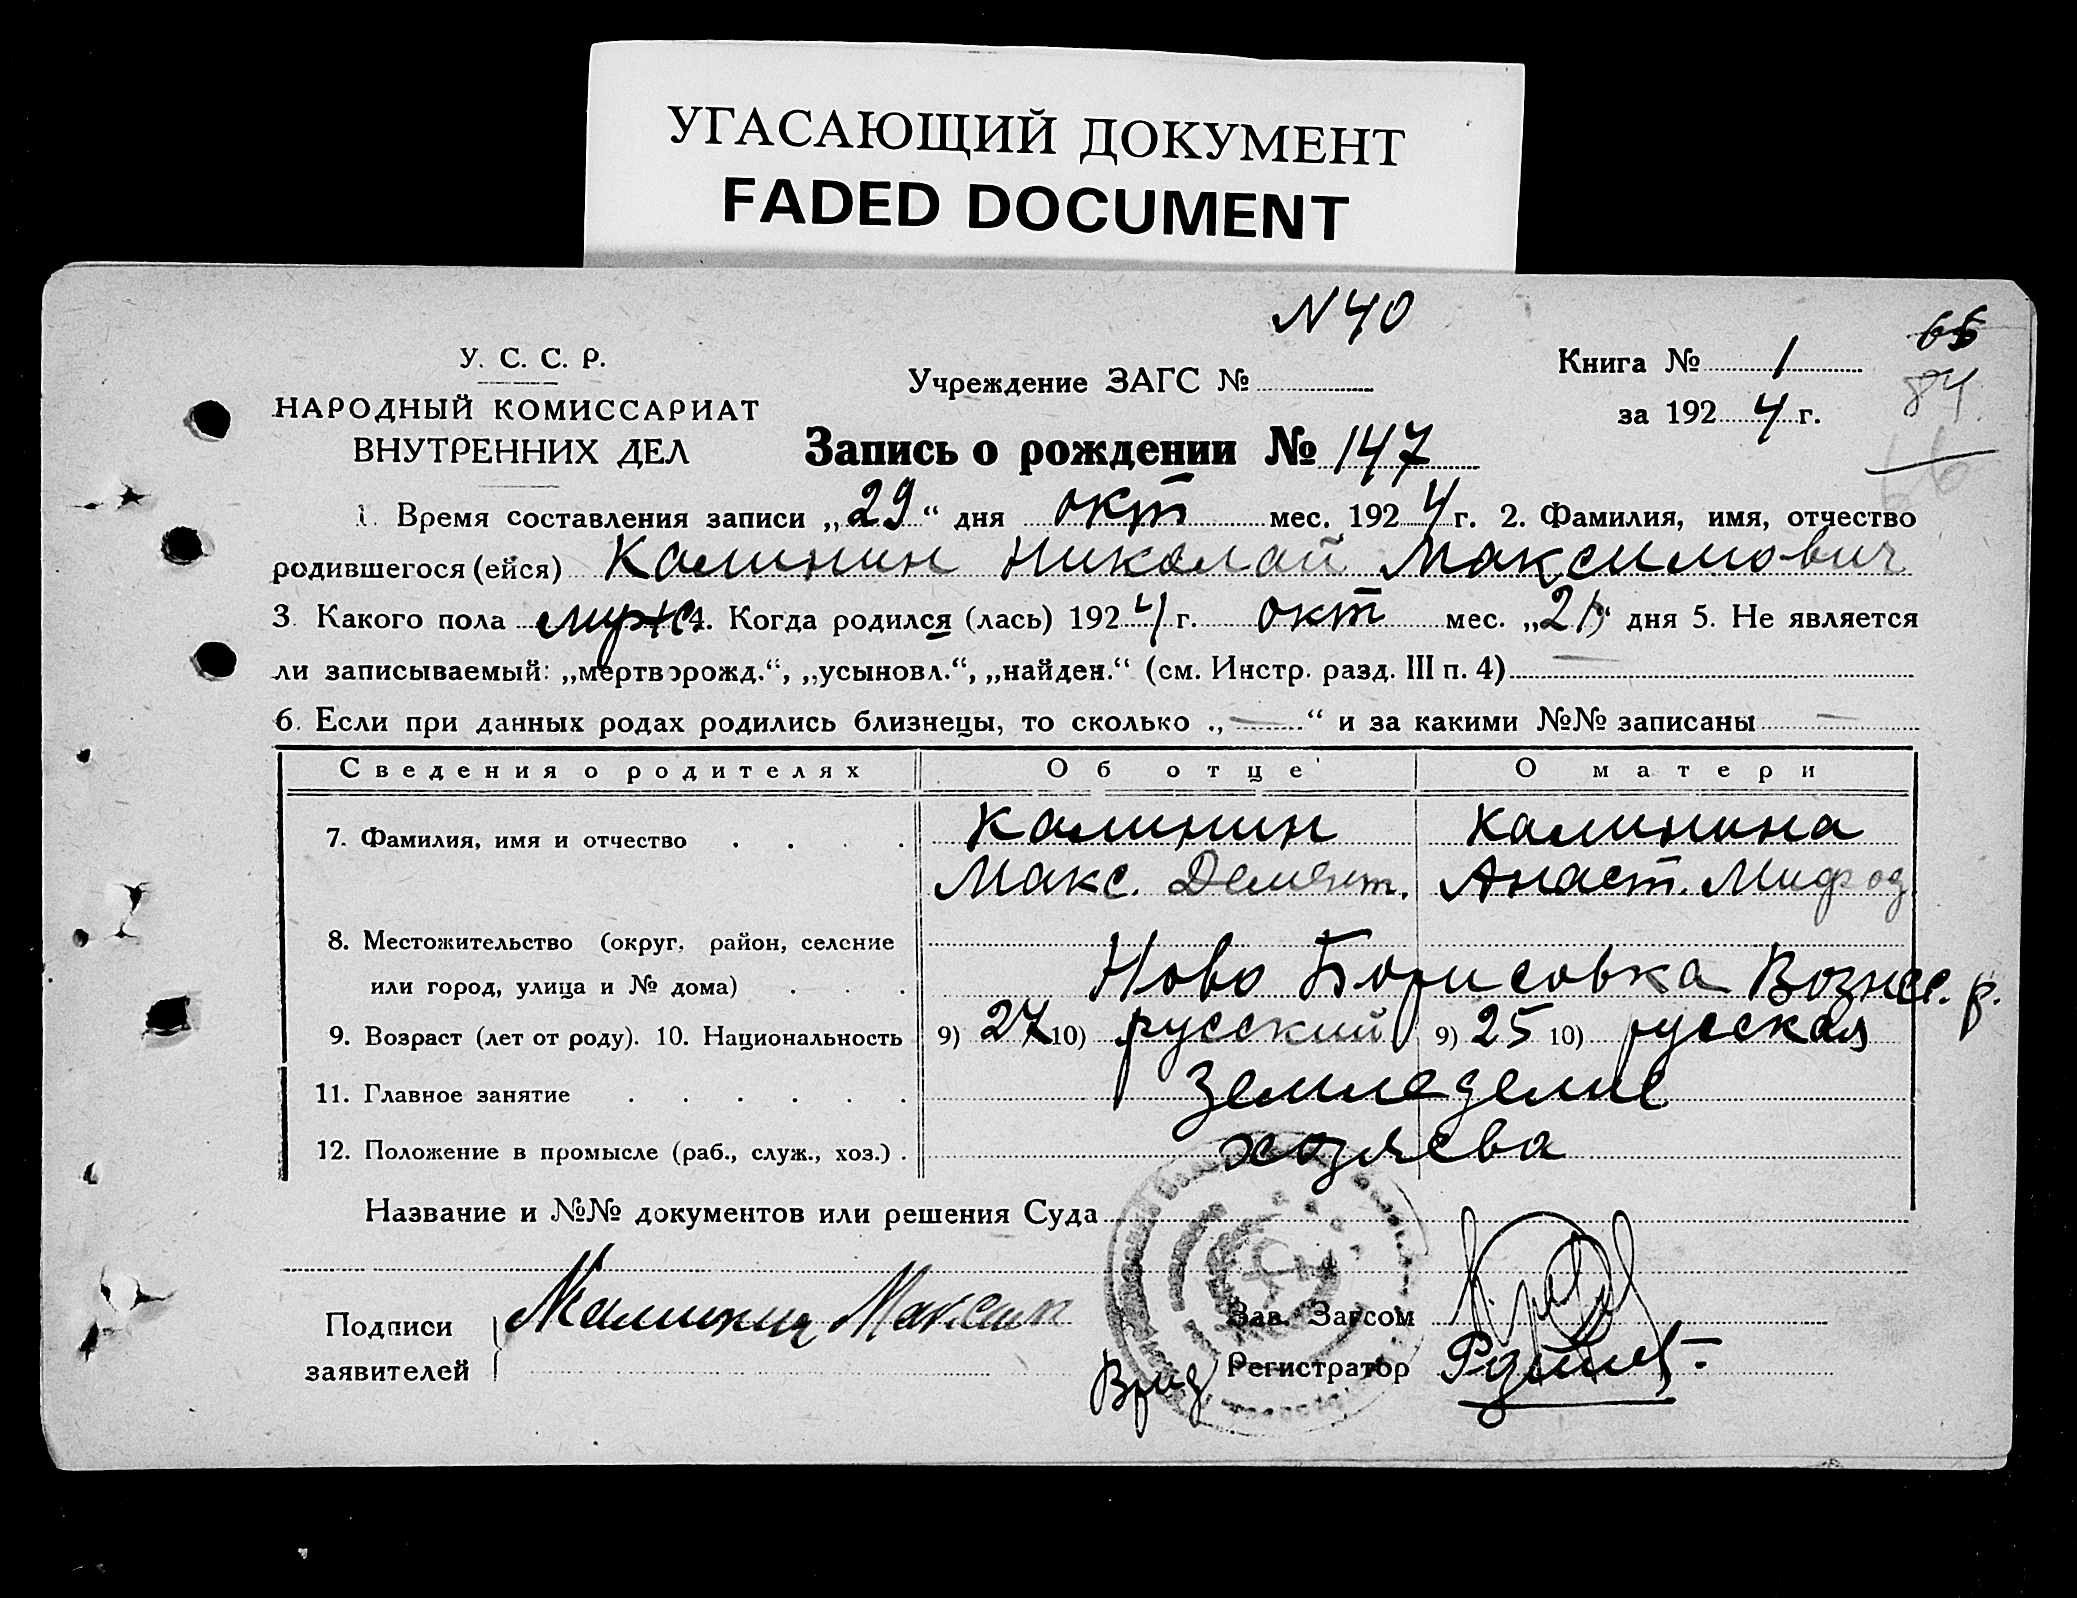 УГАСАЮЩИЙ ДОКУМЕНТ
FADED DOCUMENT
N 40
У. С. С. Р.
НАРОДНЫЙ КОМИССАРИАТ
ВНУТРЕННИХ ДЕЛ
Учреждение ЗАГС №
Книга № 1
66
за 1924 г.
84
66
Запись о рождении № 147
1. Время составления записи „29“ дня окт мес. 1924 г. 2. Фамилия, имя, отчество
родившегося (ейся) Калинин Николай Максимович
3. Какого пола муж 4. Когда родился (лась) 1924 г. окт мес. „21“ дня 5. Не является
ли записываемый: „мертворожд.“, „усыновл.“, „найден.“ (см. Инстр. разд. III п. 4) —
6. Если при данных родах родились близнецы, то сколько „—“ и за какими №№ записаны —
Сведения о родителях Об отце О матери
7. Фамилия, имя и отчество . . . . Калинин Калинина
Макс. Демент. Анаст. Мифод
8. Местожительство (округ, район, селение
или город, улица и № дома) . . . Ново Борисовка Вознес. р.
9. Возраст (лет от роду). 10. Национальность 9) 27 10) русский 9) 25 10) русская
11. Главное занятие . . . . . . Земледелие
12. Положение в промысле (раб., служ., хоз.) . хозяева
Название и №№ документов или решения Суда
Подписи Калинин Максим
заявителей
Зав. Загсом
Врид Регистратор